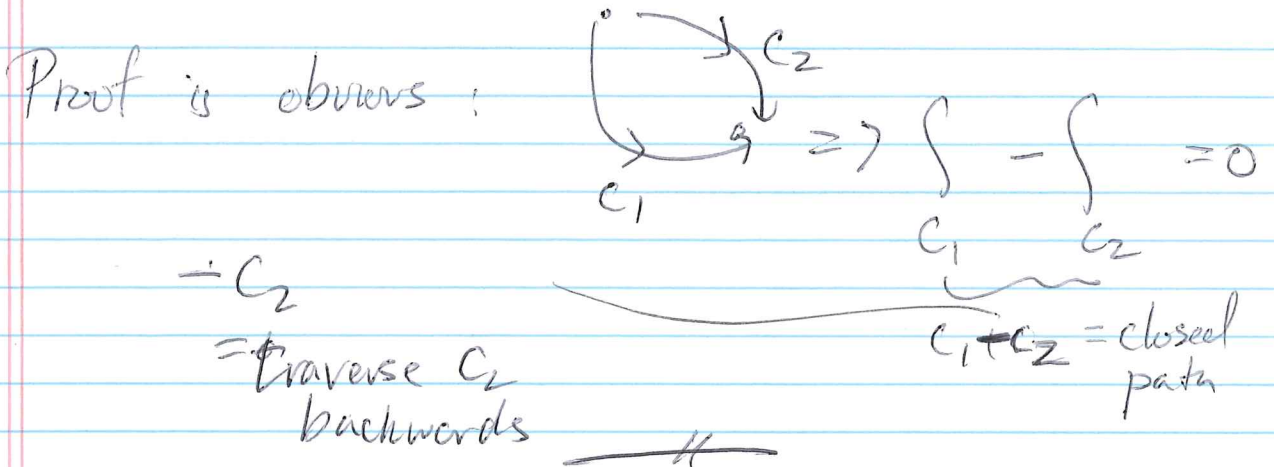 Proof is obvious :
C₂
C₁
=> ∫ - ∫ = 0
C₁ C₂
- C₂
= traverse C₂
backwards
C₁ - C₂ = closed
path